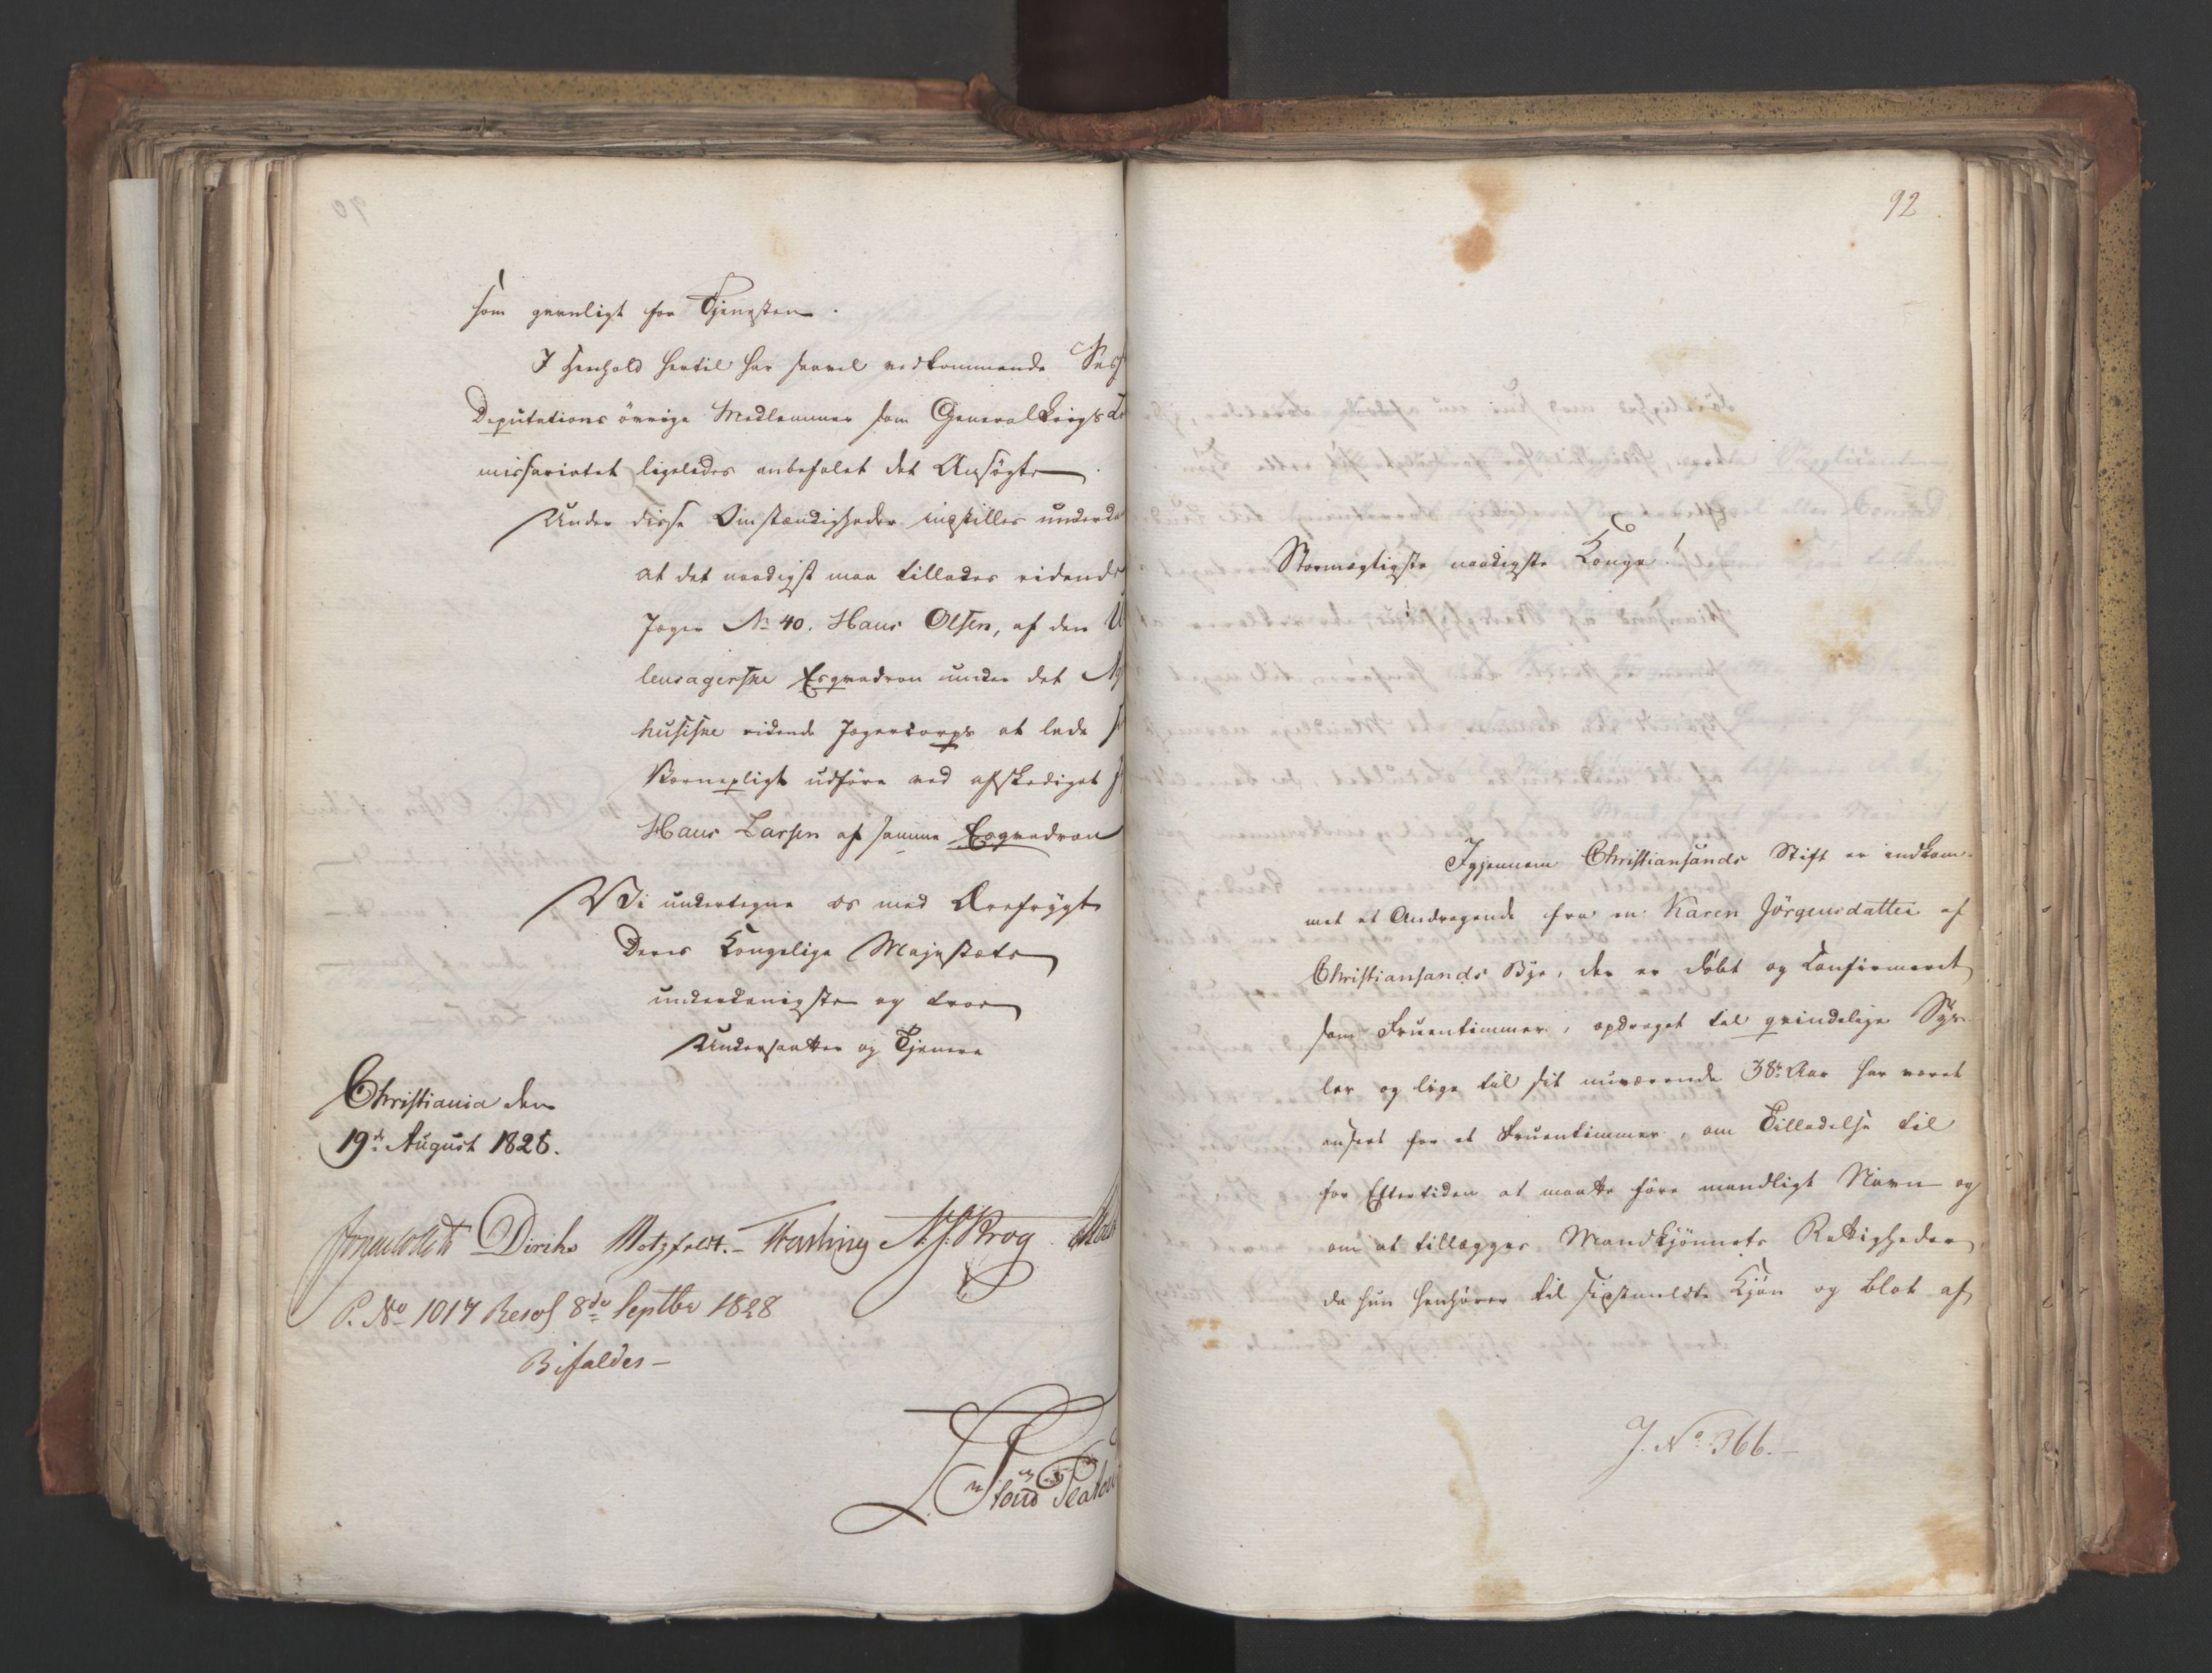 som gavnligt for Tjenesten.
I Henhold hertil har saavel vedkommende
Deputations övrige Medlemmer som Generalkrigs
missariatet ligeledes anbefalet det Ansögte.
Under disse Omstændigheder indstilles underda
at det naadigst maa tillades ridende
Jæger No 40. Hans Olsen, af den
lensagerske Esqvadron under det
husiske ridende Jægercorps at lade
Værnepligt udföre ved afskediget
Hans Larsen af samme Esqvadron
Vi undertegne os med Ærefrygt
Deres Kongelige Majestæts
underdanigste og troe
Undersaatter og Tjenere
Christiania den
19de August 1828.
Diriks Motzfeldt. N. J. Krog
P. No 1017 Resol 8de Septbr 1828
Bifaldes
92
Stormægtigste naadigste Konge!
Igjennem Christiansands Stift er indkom-
met et Andragende fra en Karen Jörgensdatter af
Christiansands Bye, der er döbt og Confirmeret
som Fruentimmer, opdraget til qvindelige Sys-
ler og lige til sit nuværende 38te Aar har været
anseet for et Fruentimmer, om Tilladelse til
for Eftertiden at maatte före mandligt Navn og
om at tillægges Mandkjönnets Rettigheder,
da hun henhörer til sidstmeldte Kjön og blot af
J. No 366.